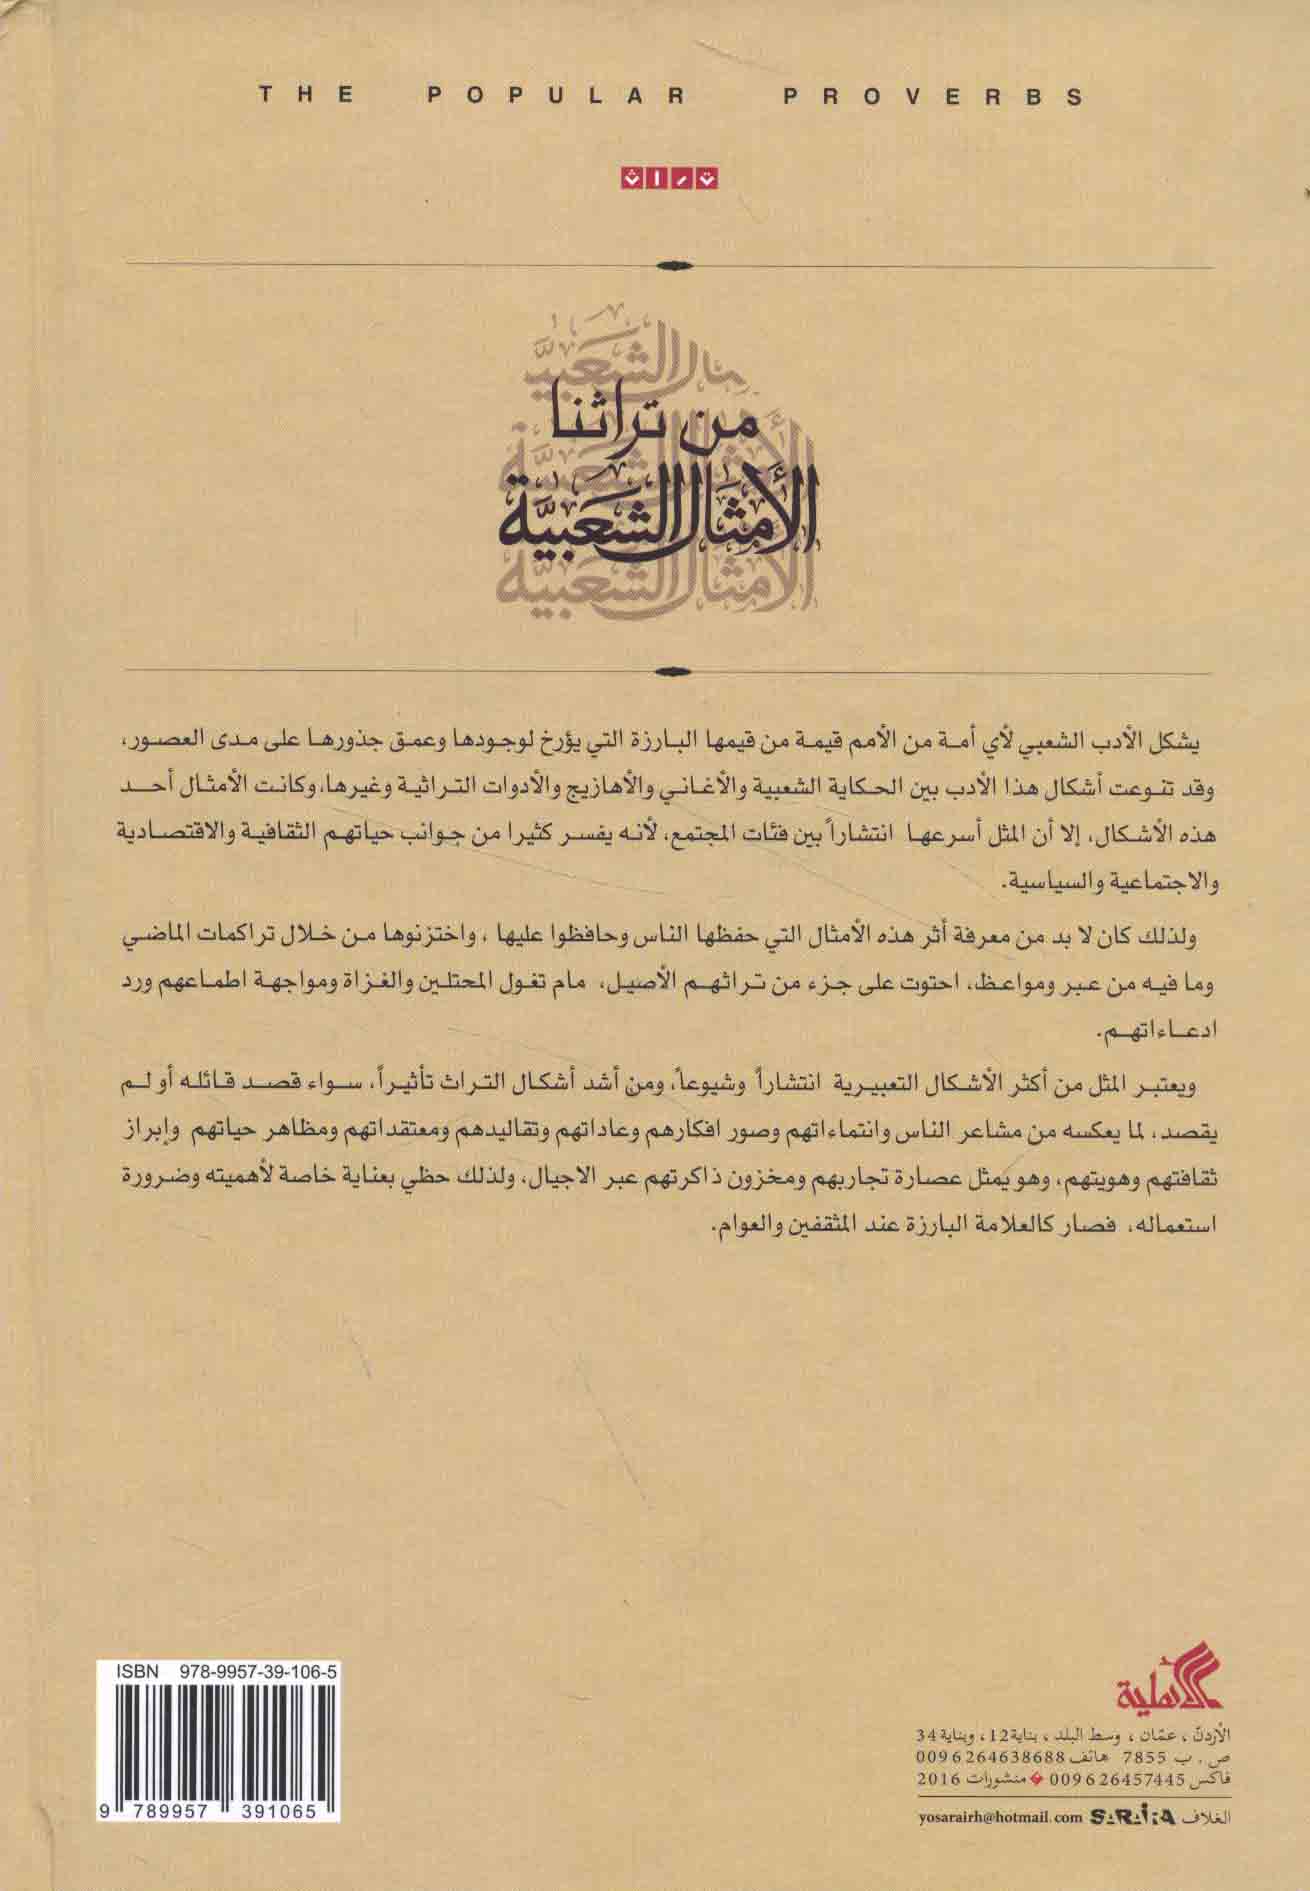 THE POPULAR PROVERBS
تراث
من تراثنا
الأمثال الشعبية
يشكل الأدب الشعبي لأي أمة من الأمم قيمة من قيمها البارزة التي يؤرخ لوجودها وعمق جذورها على مدى العصور،
وقد تنوعت أشكال هذا الأدب بين الحكاية الشعبية والأغاني والأهازيج والأدوات التراثية وغيرها، وكانت الأمثال أحد
هذه الأشكال، إلا أن المثل أسرعها انتشاراً بين فئات المجتمع، لأنه يفسر كثيرا من جوانب حياتهم الثقافية والاقتصادية
والاجتماعية والسياسية.
ولذلك كان لا بد من معرفة أثر هذه الأمثال التي حفظها الناس وحافظوا عليها ، واختزنوها من خلال تراكمات الماضي
وما فيه من عبر ومواعظ، احتوت على جزء من تراثهم الأصيل، مام تغول المحتلين والغزاة ومواجهة اطماعهم ورد
ادعاءاتهم.
ويعتبر المثل من أكثر الأشكال التعبيرية انتشاراً وشيوعاً، ومن أشد أشكال التراث تأثيراً، سواء قصد قائله أو لم
يقصد، لما يعكسه من مشاعر الناس وانتماءاتهم وصور افكارهم وعاداتهم وتقاليدهم ومعتقداتهم ومظاهر حياتهم وإبراز
ثقافتهم وهويتهم، وهو يمثل عصارة تجاربهم ومخزون ذاكرتهم عبر الاجيال، ولذلك حظي بعناية خاصة لأهميته وضرورة
استعماله، فصار كالعلامة البارزة عند المثقفين والعوام.
ISBN 978-9957-39-106-5
9 789957 391065
الأهلية
الأردن ، عمّان ، وسط البلد ، بناية 12 ، وبناية 34
ص . ب 7855 هاتف 0096264638688
فاكس 0096 26457445 منشورات 2016
الغلاف SARAIRA yosarairh@hotmail.com